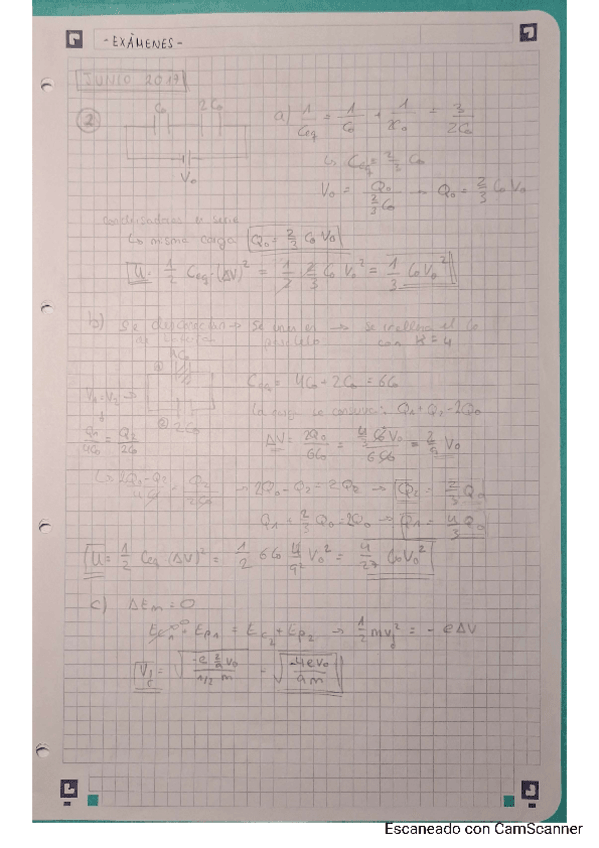 - EXÁMENES -
JUNIO 2017
② C₀ 2C₀ V₀
a) 1/Ceq = 1/C₀ + 1/2C₀ = 3/2C₀
↳ Ceq = 2/3 C₀
V₀ = Q₀ / (2/3 C₀) → Q₀ = 2/3 C₀ V₀
condensadores en serie
↳ misma carga Q₀ = 2/3 C₀ V₀
U = 1/2 Ceq · (ΔV)² = 1/2 2/3 C₀ V₀² = 1/3 C₀V₀²
b) Se desconectan → Se unen en → se rellena el C₀
paralelo con K = 4
Ceq = 4C₀ + 2C₀ = 6C₀
V₁ = V₂ → ② 2C₀
La carga se conserva: Q₁ + Q₂ = 2Q₀
Q₁/4C₀ = Q₂/2C₀
ΔV = 2Q₀/6C₀ = (4/3 C₀V₀)/6C₀ = 2/9 V₀
↳ (2Q₀ - Q₂)/4C₀ = Q₂/2C₀ → 2Q₀ - Q₂ = 2Q₂ → Q₂ = 2/3 Q₀
Q₁ + 2/3 Q₀ = 2Q₀ → Q₁ = 4/3 Q₀
U = 1/2 Ceq (ΔV)² = 1/2 6C₀ 4/9² V₀² = 4/27 C₀V₀²
c) ΔEm = 0
Ec₁ + Ep₁ = Ec₂ + Ep₂ → 1/2 mvf² = - eΔV
Vf = √(-e 2/9 V₀ / 1/2 m) = √(-4eV₀ / 9m)
Escaneado con CamScanner